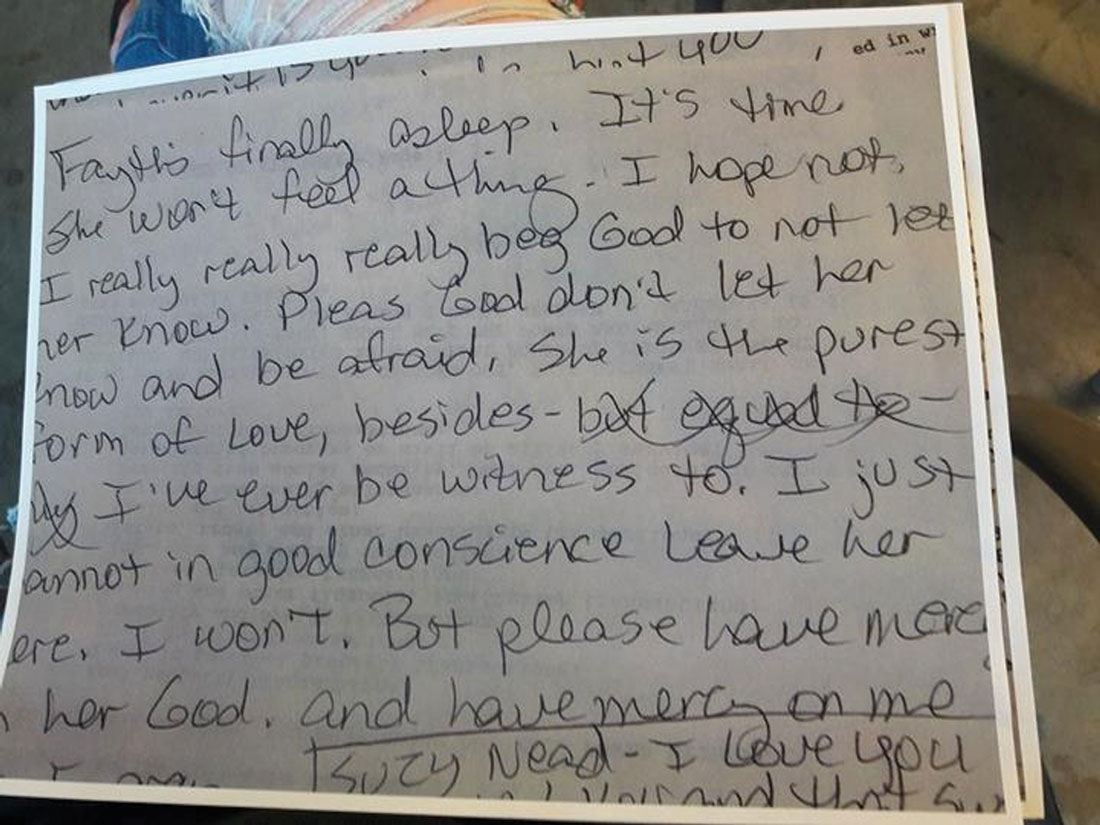 ed in
hint you
Fayth's finally asleep. It's time
She won't feel a thing. I hope not.
I really really really beg God to not let
her know. Pleas God don't let her
know and be afraid. She is the purest
form of Love, besides - but equal to -
I've ever be witness to. I just
annot in good conscience Leave her
ere. I won't. But please have merc
her God. and have mercy on me
Suzy Nead - I Love you
and that